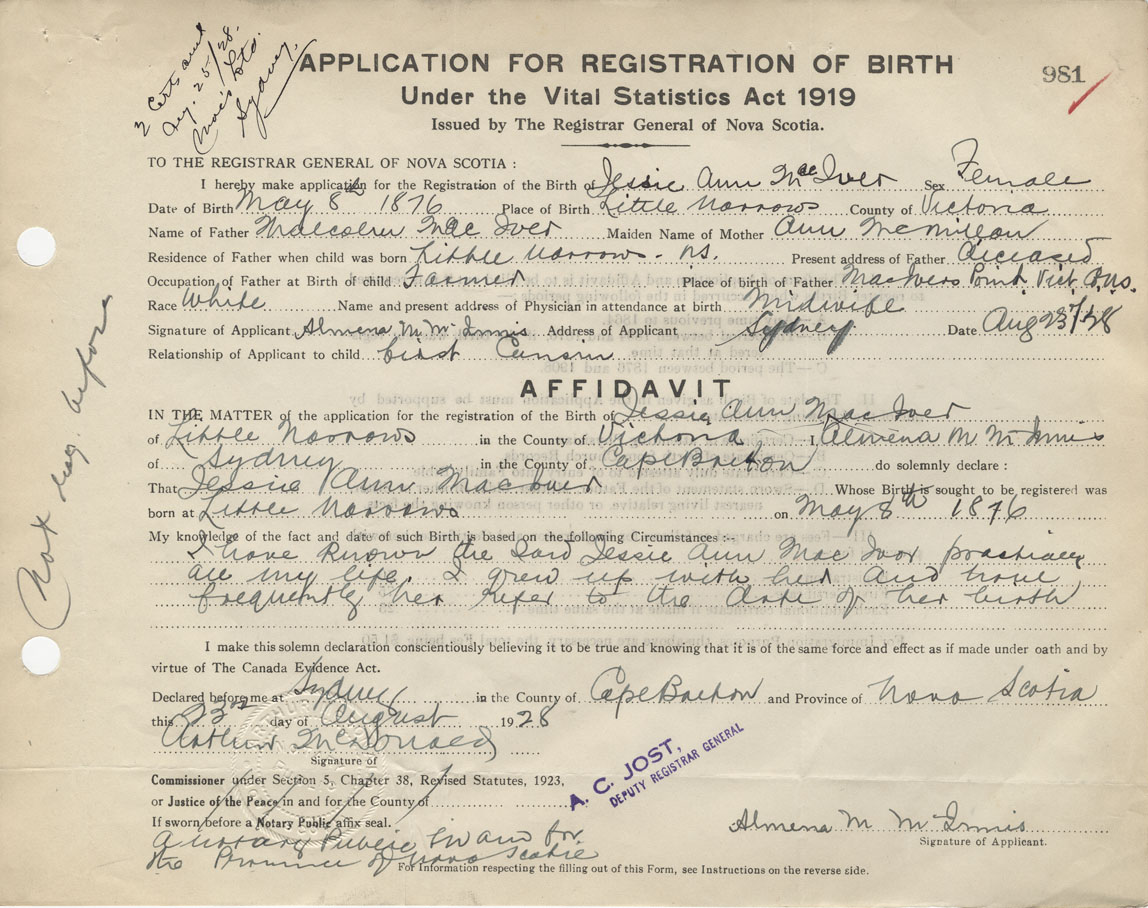 2 Certs and
Aug. 25/28.
Sydney,
APPLICATION FOR REGISTRATION OF BIRTH
981
Under the Vital Statistics Act 1919
Issued by The Registrar General of Nova Scotia.
TO THE REGISTRAR GENERAL OF NOVA SCOTIA :
I hereby make application for the Registration of the Birth of Jessie Ann MacIver Sex Female
Date of Birth May 8th 1876 Place of Birth Little Narrows County of Victoria
Name of Father Malcolm MacIver Maiden Name of Mother Ann McMillan
Residence of Father when child was born Little Narrows - N.S. Present address of Father deceased
Occupation of Father at Birth of child Farmer Place of birth of Father MacIvers Point. Vict. Co. N.S.
Race White Name and present address of Physician in attendance at birth Midwife
Signature of Applicant Almena M McInnis Address of Applicant Sydney Date Aug 23/28
Relationship of Applicant to child first Cousin
AFFIDAVIT
IN THE MATTER of the application for the registration of the Birth of Jessie Ann MacIver
of Little Narrows in the County of Victoria I, Almena M McInnis
of Sydney in the County of Cape Breton do solemnly declare :
That Jessie Ann MacIver Whose Birth is sought to be registered was
born at Little Narrows on May 8th 1876
My knowledge of the fact and date of such Birth is based on the following Circumstances :-
I have known the said Jessie Ann Mac Iver practically
all my life. I grew up with her and have
frequently her refer to the date of her birth
I make this solemn declaration conscientiously believing it to be true and knowing that it is of the same force and effect as if made under oath and by
virtue of The Canada Evidence Act.
Declared before me at Sydney in the County of Cape Breton and Province of Nova Scotia
this 23rd day of August 1928
Arthur McDonald
Signature of
Commissioner under Section 5, Chapter 38, Revised Statutes, 1923,
or Justice of the Peace in and for the County of
If sworn before a Notary Public affix seal.
A Notary Public in and for
the Province of Nova Scotia
A. C. JOST,
DEPUTY REGISTRAR GENERAL
Almena M McInnis
Signature of Applicant.
For Information respecting the filling out of this Form, see Instructions on the reverse side.
Not reg. before